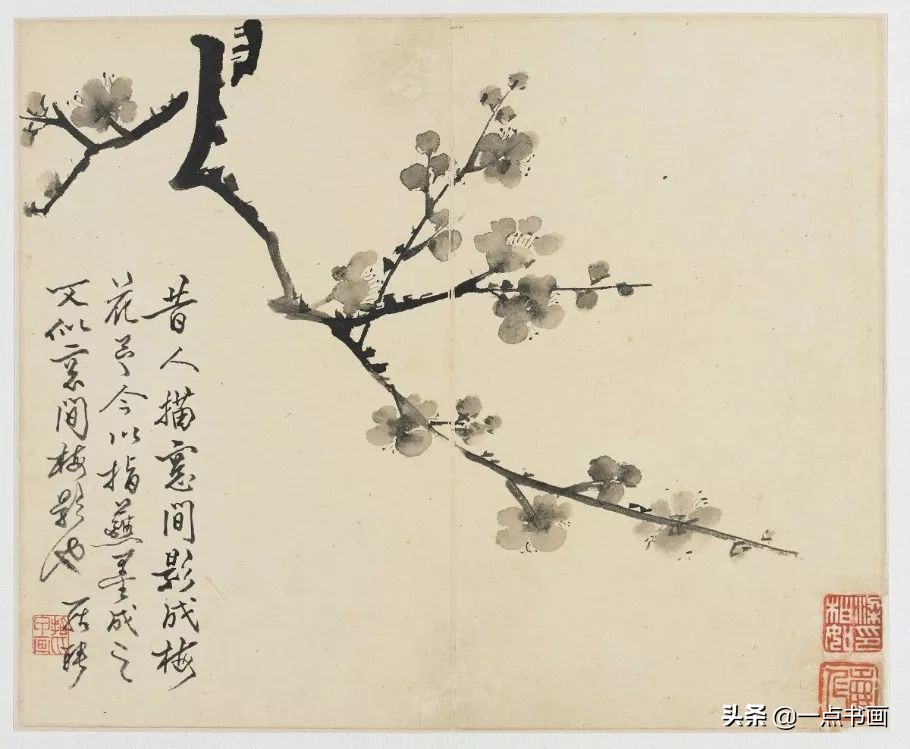 昔人描窻間影成梅
花今以指蘸墨成之
又似窻間梅影也
头条 @一点书画